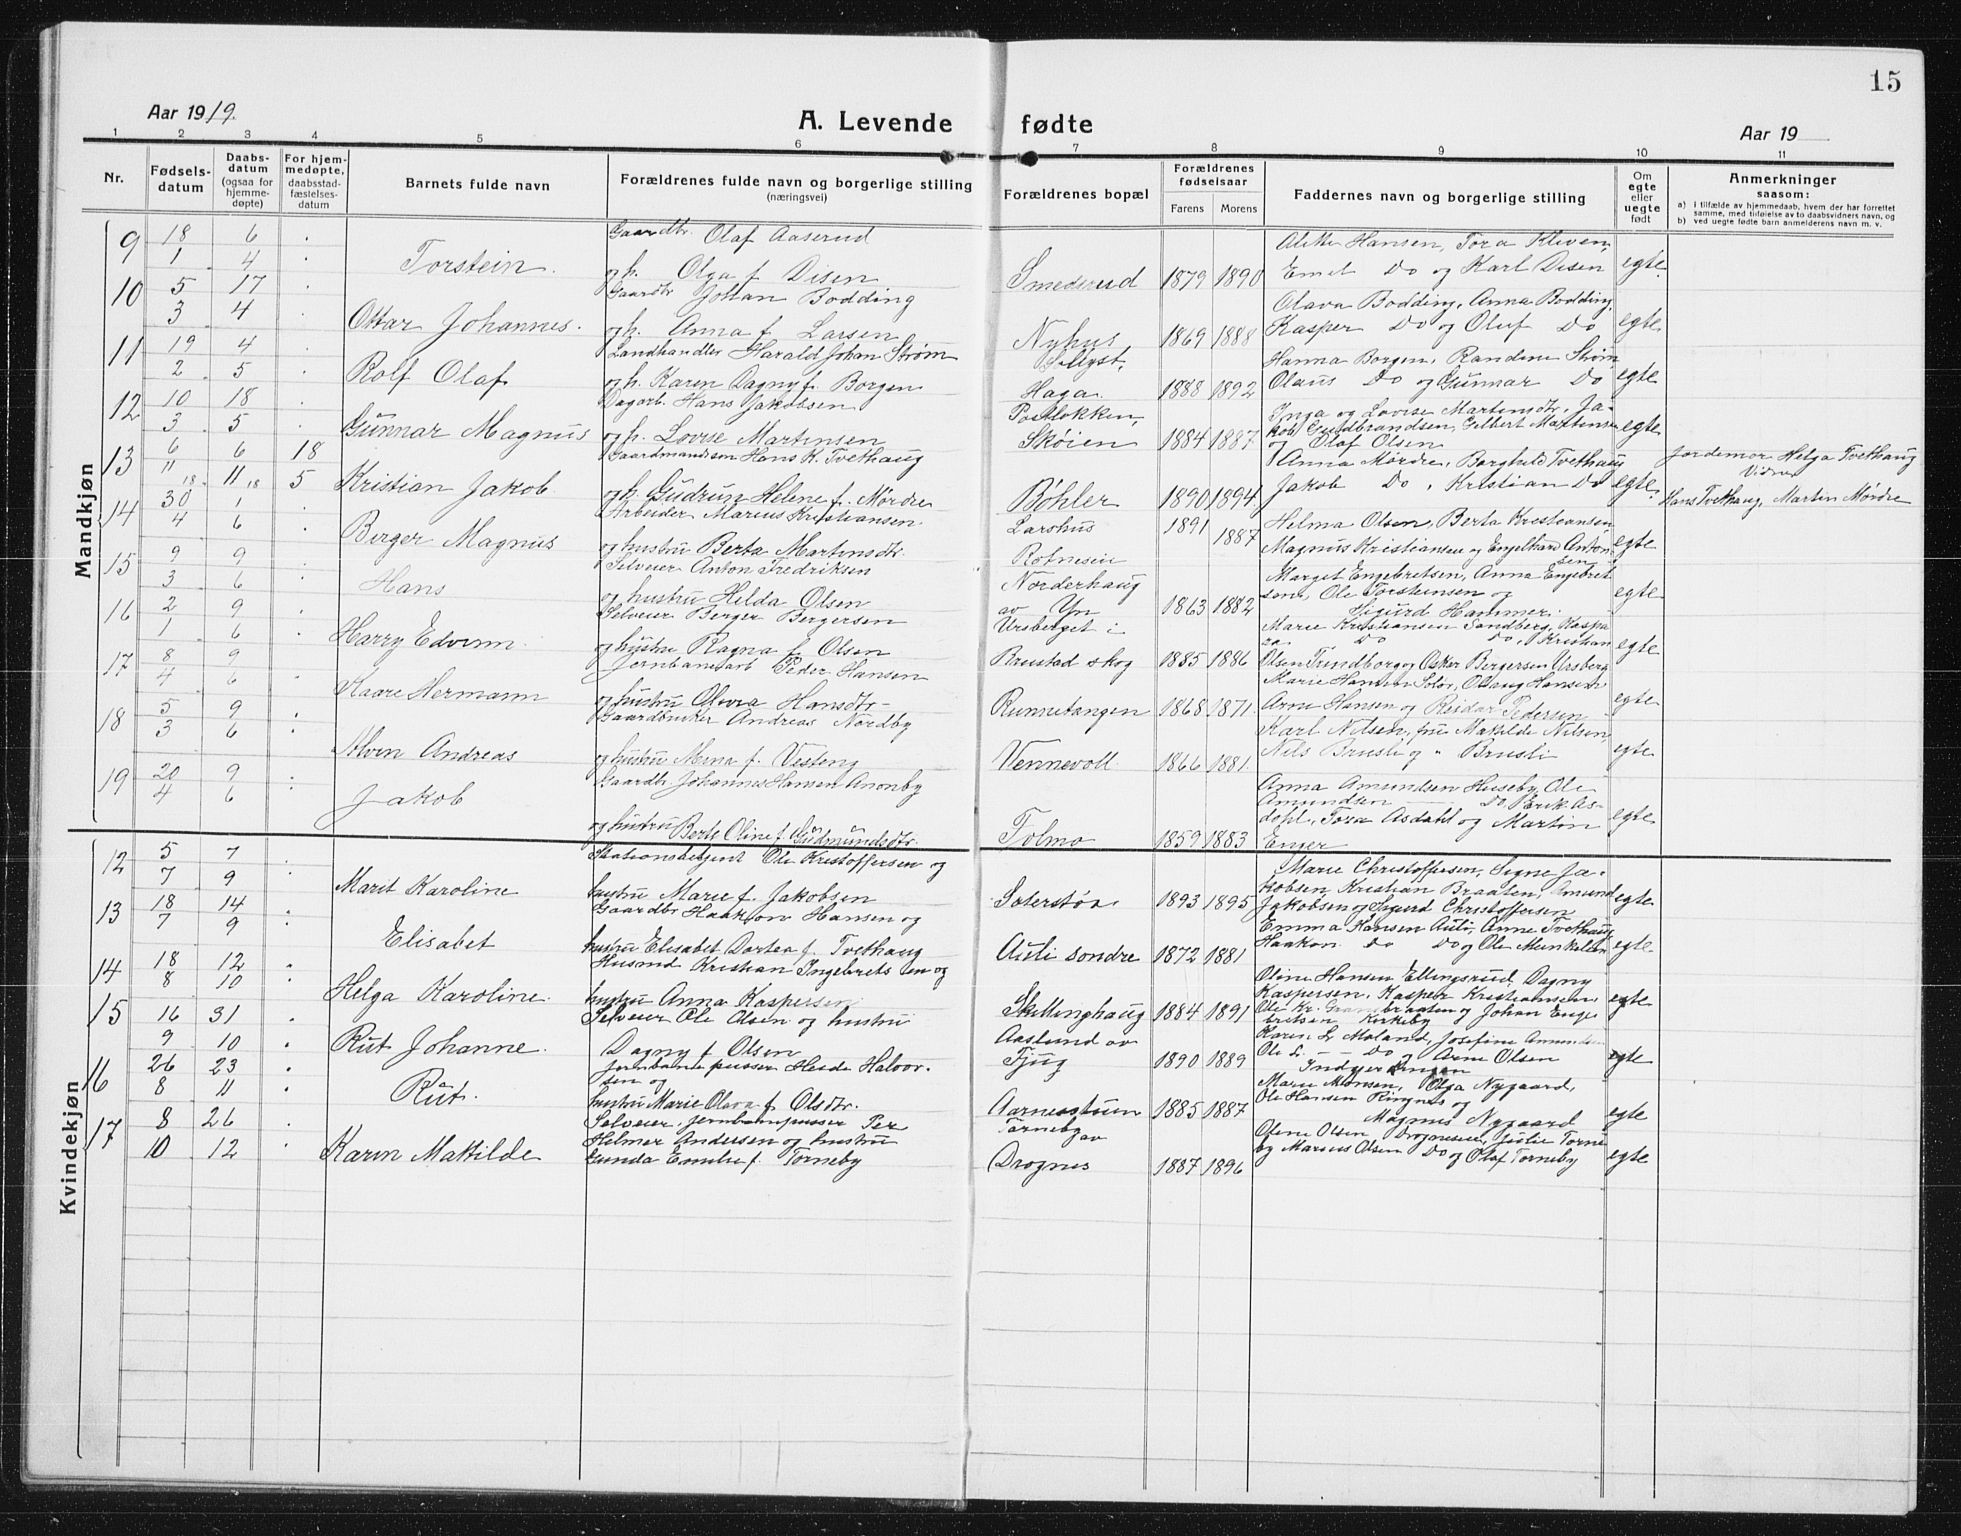 15
Aar 1919.
A. Levende fødte
Aar 19
1 2 3 4 5 6 7 8 9 10 11
Nr.
Fødsels-
datum
Daabs-
datum
(ogsaa for
hjemme-
døpte)
For hjem-
medøpte,
daabsstad-
fæstelses-
datum
Barnets fulde navn
Forældrenes fulde navn og borgerlige stilling
(næringsvei)
Forældrenes bopæl
Forældrenes
fødselsaar
Farens Morens
Faddernes navn og borgerlige stilling
Om
egte
eller
uegte
født
Anmerkninger
saasom:
a) i tilfælde av hjemmedaab, hvem der har forrettet
samme, med tilføielse av to daabsvidners navn, og
b) ved uegte fødte barn anmelderens navn m. v.
Mandkjøn
9 18/1 6/4 Torstein.
Gaardbr. Olaf Aaserud
og h. Olga f. Disen
Smedsrud 1879 1890
Hansen, Tora Kleven,
Emil Do og Karl Disen
egte
10 5/3 17/4 Ottar Johannes.
Gaardbr Johan Bodding
og h. Anna f. Larsen
Nyhus 1869 1888
Olava Bodding, Anna Bodding,
Kasper Do og Oluf Do
egte
11 19/2 4/5 Rolf Olaf
Landhandler Harald Johan Strøm
og h. Karen Dagny f. Borgen
Sollyst,
Haga. 1888 1892
Hanna Borgen, Randine Strøm,
Olaus Do og Gunnar Do
egte
12 10/3 18/5 Gunnar Magnus
Dagarb. Hans Jakobsen
og h. Lovise Martinsen
Skøien 1884 1887
Inga og Lovise Martinsdtr, Ja-
kob Gudbrandsen, Gilbert Martinsen
og Olaf Olsen
egte
13 6/11 18 6/11 18 18/5 Kristian Jakob
Gaardmandssøn Hans K. Tvethaug
og h. Gudrun Helene f. Mørdre
Bøhler 1890 1894
Anna Mørdre, Borghild Tvethaug
Jakob Do, Kristian Do
egte
Jordemor Helga Tvethaug
Hans Tvethaug, Martin Mørdre
14 30/4 1/6 Birger Magnus
Arbeider Marius Kristiansen
og hustru Berta Martinsdtr.
Larshus 1891 1887
Helma Olsen, Berta Kristiansen
Magnus Kristiansen og Engelhard Anton-
sen
egte
15 9/3 9/6 Hans
Selveier Anton Fredriksen
og hustru Hilda Olsen
Norderhaug
av Yn 1863 1882
Marget Engebretsen, Anna Engebret
sen, Ole Torsteinsen og
Sigurd Hammer.
egte
16 2/1 9/6 Harry Edvinn
Selveier Berger Bergersen
og hustru Ragna f. Olsen
Ursberget i
Brustad skog 1885 1886
Marie Kristiansen Sandberg, Kaspa
ra Do Do, Kristian
Olsen Tundborg og Oskar Bergersen Ursberg
egte
17 8/4 9/6 Kaare Hermann
Jernbanearb Peder Hansen
og hustru Olovia Hansdtr.
Runnetangen 1868 1871
Marie Hansen Solør, Oslaug Hansen
Arne Hansen og Reidar Pedersen
egte
18 5/3 9/6 Alvin Andreas
Gaardbruker Andreas Nordby
og hustru Mina f. Vesteng
Vennevoll 1866 1881
Karl Nilsen, fru Matilde Nilsen,
Nils Brusti og " Brusti
egte
19 20/4 9/6 Jakob
Gaardbr Johannes Hansen Anonby
og hustru Berte Oline f. Gudmundsdtr.
Tolmo 1859 1883
Anna Amundsen Huseby, Ole
Amundsen Do, Erik As-
dahl, Tora Asdahl og Martin
Enger
egte
Kvindekjøn
12 5/7 7/9 Marit Karoline
Stationsbetjent Ole Kristoffersen og
hustru Marie f. Jakobsen
Seterstøa 1893 1895
Marie Christoffersen, Signe Ja-
kobsen, Kristian Braaten, Amund
Jakobsen og Sigurd Christoffersen
egte
13 18/7 14/9 Elisabet
Gaardbr Haakon Hansen og
hustru Elisabet Dortea f. Tvethaug
Auli søndre 1872 1881
Emma Hansen Auli, Anne Tvethaug
Haakon Do Do og Ole Munkelien
egte
14 18/8 12/10 Helga Karoline.
Husmd Kristian Ingebretsen og
hustru Anna Kaspersen
Skillinghaug 1884 1891
Oline Hansen Ellingsrud, Dagny
Kaspersen, Kasper Kristiansen,
Ole Kr. Granbraaten og Johan Enge-
bretsen Kirkeby
egte
15 16/9 31/10 Rut Johanne.
Selveier Ole Olsen og hustru
Dagny f. Olsen
Aaslund av
Fjug 1890 1889
Karen L. Moland, Josefine Amundsen
Ole L. - - Do og Arne Olsen
egte
16 26/8 23/11 Rut.
Jernbanepusser Heide Halvor-
sen og
hustru Marie Olava f. Olsdtr.
Aarnesstuen 1885 1887
Marie Monsen, Olga Nygaard,
Ole Hansen Ringnes og
Magnus Nygaard
egte
17 8/10 26/12 Karin Matilde
Selveier, jernbanepusser Per
Helmer Andersen og hustru
Gunda Emilie f. Torneby
Torneby
av
Drognes 1887 1896
Oline Olsen Drognes, Julie Torne
by Marius Olsen Do og Olaf Torneby
egte